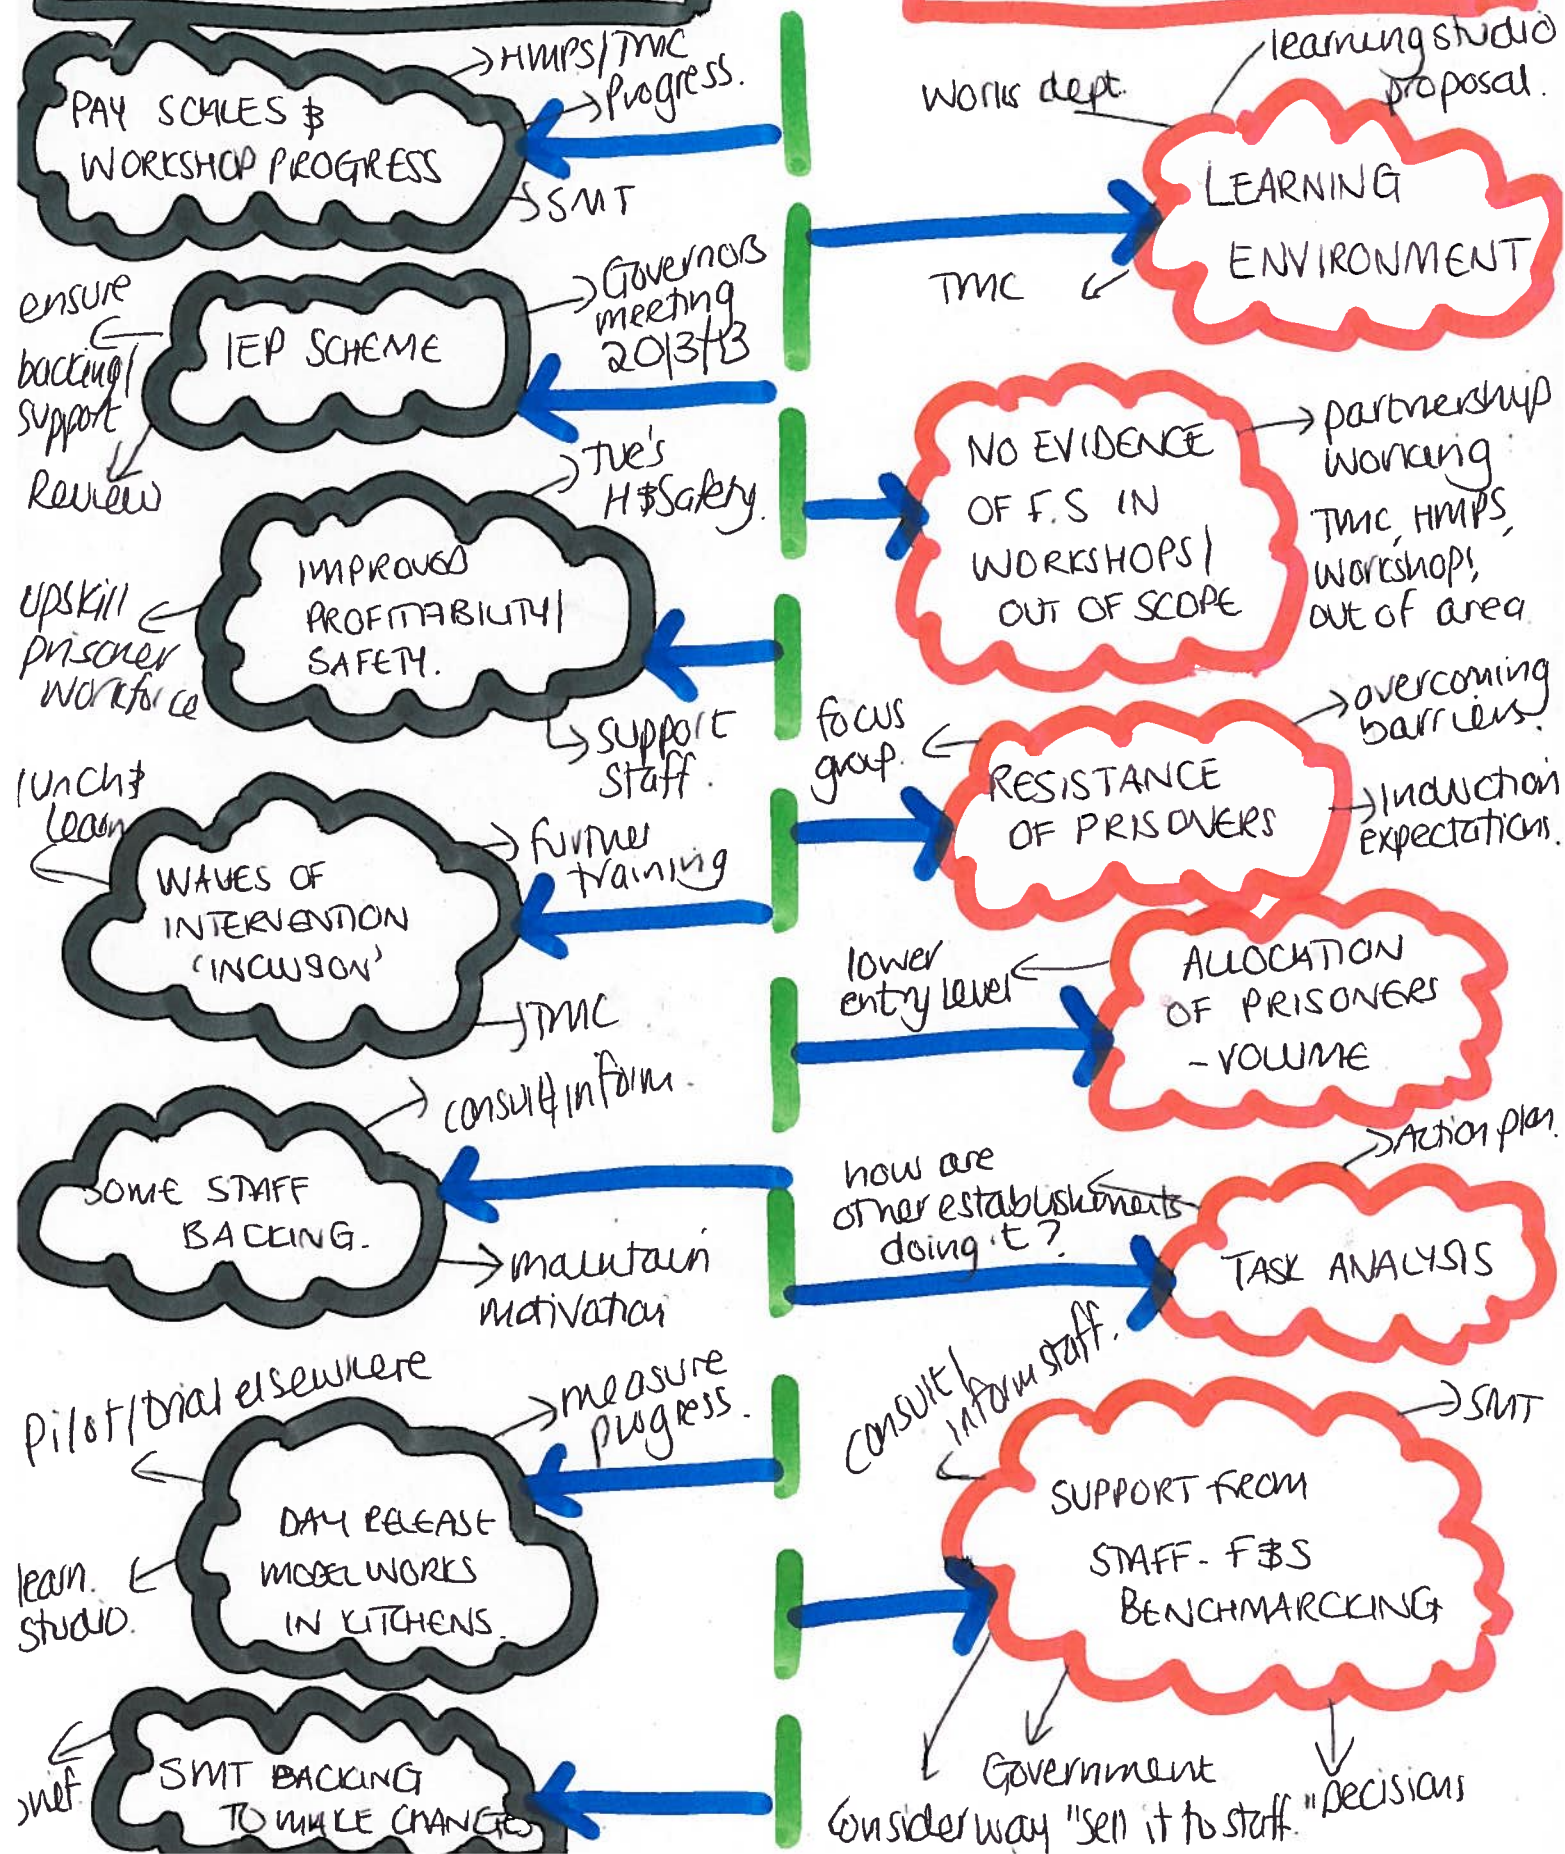 →HMPS/TMC
→Progress.
PAY SCALES &
WORKSHOP PROGRESS
→SMT
ensure
backing/
support
Review
IEP SCHEME
Governors
meeting
TUE's
H&Safety.
IMPROVED
PROFITABILITY/
SAFETY.
UPSKILL
prisoner
workforce
support
staff.
lunch &
learn
WAVES OF
INTERVENTION
'INCLUSION'
further
training
TMC
consult/inform.
SOME STAFF
BACKING.
maintain
motivation
Pilot/trial elsewhere
measure
progress.
DAY RELEASE
MODEL WORKS
IN KITCHENS.
learn.
studio.
SMT BACKING
TO MAKE CHANGES
learning studio
proposal.
Works dept.
LEARNING
ENVIRONMENT
TMC
NO EVIDENCE
OF F.S IN
WORKSHOPS/
OUT OF SCOPE
partnership
working
TMC, HMPS,
workshops,
out of area
focus
group.
RESISTANCE
OF PRISONERS
overcoming
barriers.
Induction
expectations.
lower
entry level
ALLOCATION
OF PRISONERS
-VOLUME
Action plan.
how are
other establishments
doing it?
TASK ANALYSIS
consult/
inform staff.
SMT
SUPPORT FROM
STAFF- F&S
BENCHMARCKING
Government
Decisions
Consider way "sell it to staff."